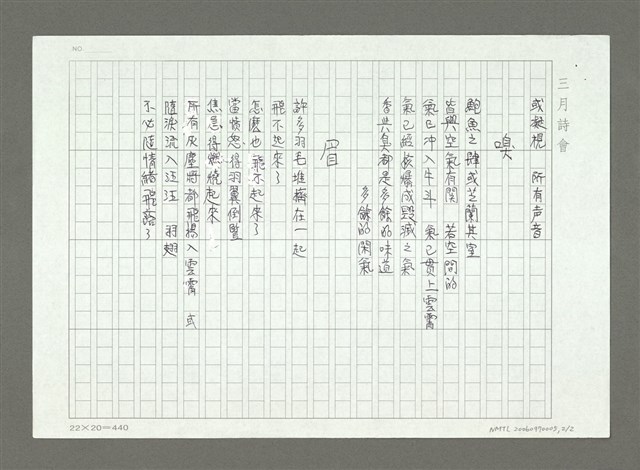 NO.
三月詩會
或凝視 所有声音
嗅
鮑魚之肆或芝蘭其室
皆與空氣有關 若空間的
氣已冲入牛斗 氣已贯上雲霄
氣已經核爆成毀滅之氣
香與臭都是多餘的味道
多餘的閑氣
眉
許多羽毛堆擠在一起
飛不起來了
怎麼也飛不起來了
當憤怒得羽翼倒豎
焦急得燃燒起來
所有灰塵將都飛揚入雲霄 或
隨淚流入江江 羽翅
不必隨情緒飛落了
22×20=440
NMTL 20060990005, 2/2